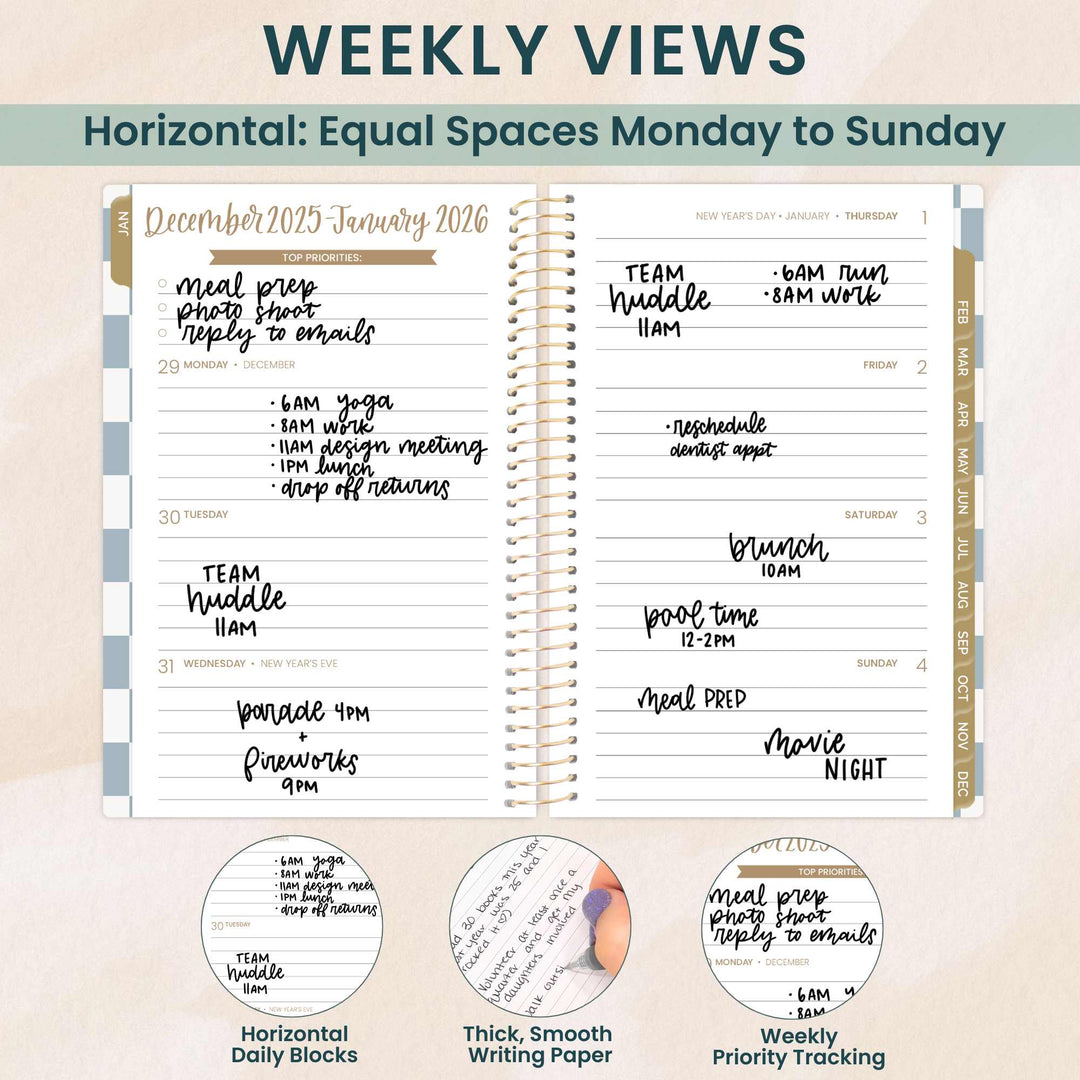 WEEKLY VIEWS
Horizontal: Equal Spaces Monday to Sunday
JAN
December 2025-January 2026
TOP PRIORITIES:
meal prep
photo shoot
reply to emails
29 MONDAY • DECEMBER
• 6AM yoga
• 8AM work
• 11AM design meeting
• 1PM lunch
• drop off returns
30 TUESDAY
TEAM
huddle
11AM
31 WEDNESDAY • NEW YEAR'S EVE
parade 4PM
+
fireworks
9PM
NEW YEAR'S DAY • JANUARY • THURSDAY 1
TEAM
huddle
11AM
• 6AM run
• 8AM work
FRIDAY 2
• reschedule
dentist appt
SATURDAY 3
brunch
10AM
pool time
12-2PM
SUNDAY 4
meal PREP
movie
NIGHT
FEB
MAR
APR
MAY
JUN
JUL
AUG
SEP
OCT
NOV
DEC
• 6AM yoga
• 8AM work
• 11AM design meet
• 1PM lunch
• drop off returns
30 TUESDAY
TEAM
huddle
11AM
• NEW YEAR'S EVE
Horizontal
Daily Blocks
30 books this year
year was 25 and I
rocked it
Volunteer at least once a
quarter and get my
daughters involved
Thick, Smooth
Writing Paper
TOP PRIORITIES
meal prep
photo shoot
reply to emails
MONDAY • DECEMBER
• 6AM
• 8AM
Weekly
Priority Tracking